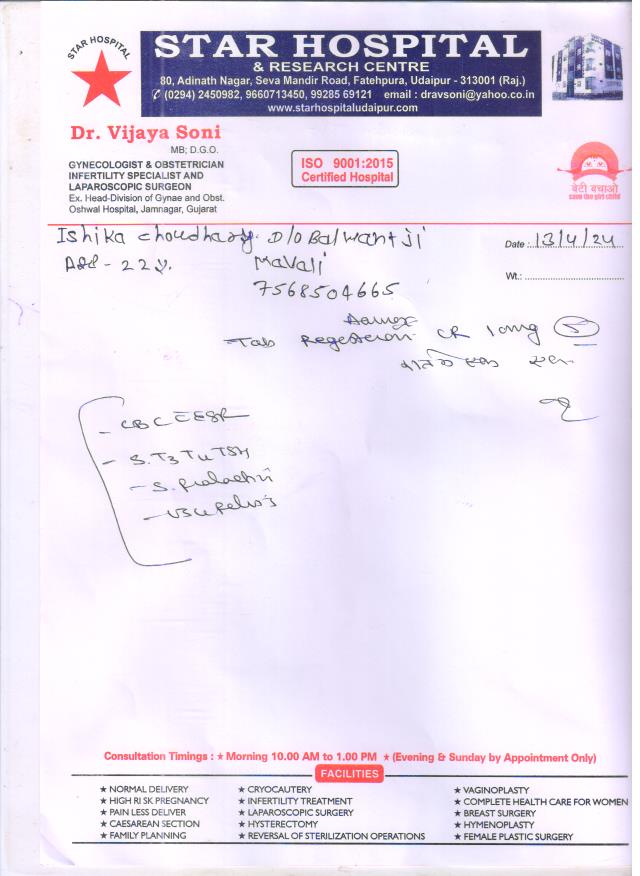 STAR HOSPITAL
STAR HOSPITAL
& RESEARCH CENTRE
80, Adinath Nagar, Seva Mandir Road, Fatehpura, Udaipur - 313001 (Raj.)
(0294) 2450982, 9660713450, 99285 69121 email : dravsoni@yahoo.co.in
www.starhospitaludaipur.com
Dr. Vijaya Soni
MB; D.G.O.
GYNECOLOGIST & OBSTETRICIAN
INFERTILITY SPECIALIST AND
LAPAROSCOPIC SURGEON
Ex. Head-Division of Gynae and Obst.
Oshwal Hospital, Jamnagar, Gujarat
ISO 9001:2015
Certified Hospital
बेटी बचाओ
save the girl child
Ishika Choudhary. D/o Balwant ji
22 y. Mavali
7568504665
Date : 13/4/24
Wt.:
Tab CR 10mg 5
CBC ESR
- S. T3 T4 TSH
- S.
- USG
Consultation Timings : ★ Morning 10.00 AM to 1.00 PM ★ (Evening & Sunday by Appointment Only)
FACILITIES
★ NORMAL DELIVERY ★ CRYOCAUTERY ★ VAGINOPLASTY
★ HIGH RISK PREGNANCY ★ INFERTILITY TREATMENT ★ COMPLETE HEALTH CARE FOR WOMEN
★ PAIN LESS DELIVER ★ LAPAROSCOPIC SURGERY ★ BREAST SURGERY
★ CAESAREAN SECTION ★ HYSTERECTOMY ★ HYMENOPLASTY
★ FAMILY PLANNING ★ REVERSAL OF STERILIZATION OPERATIONS ★ FEMALE PLASTIC SURGERY